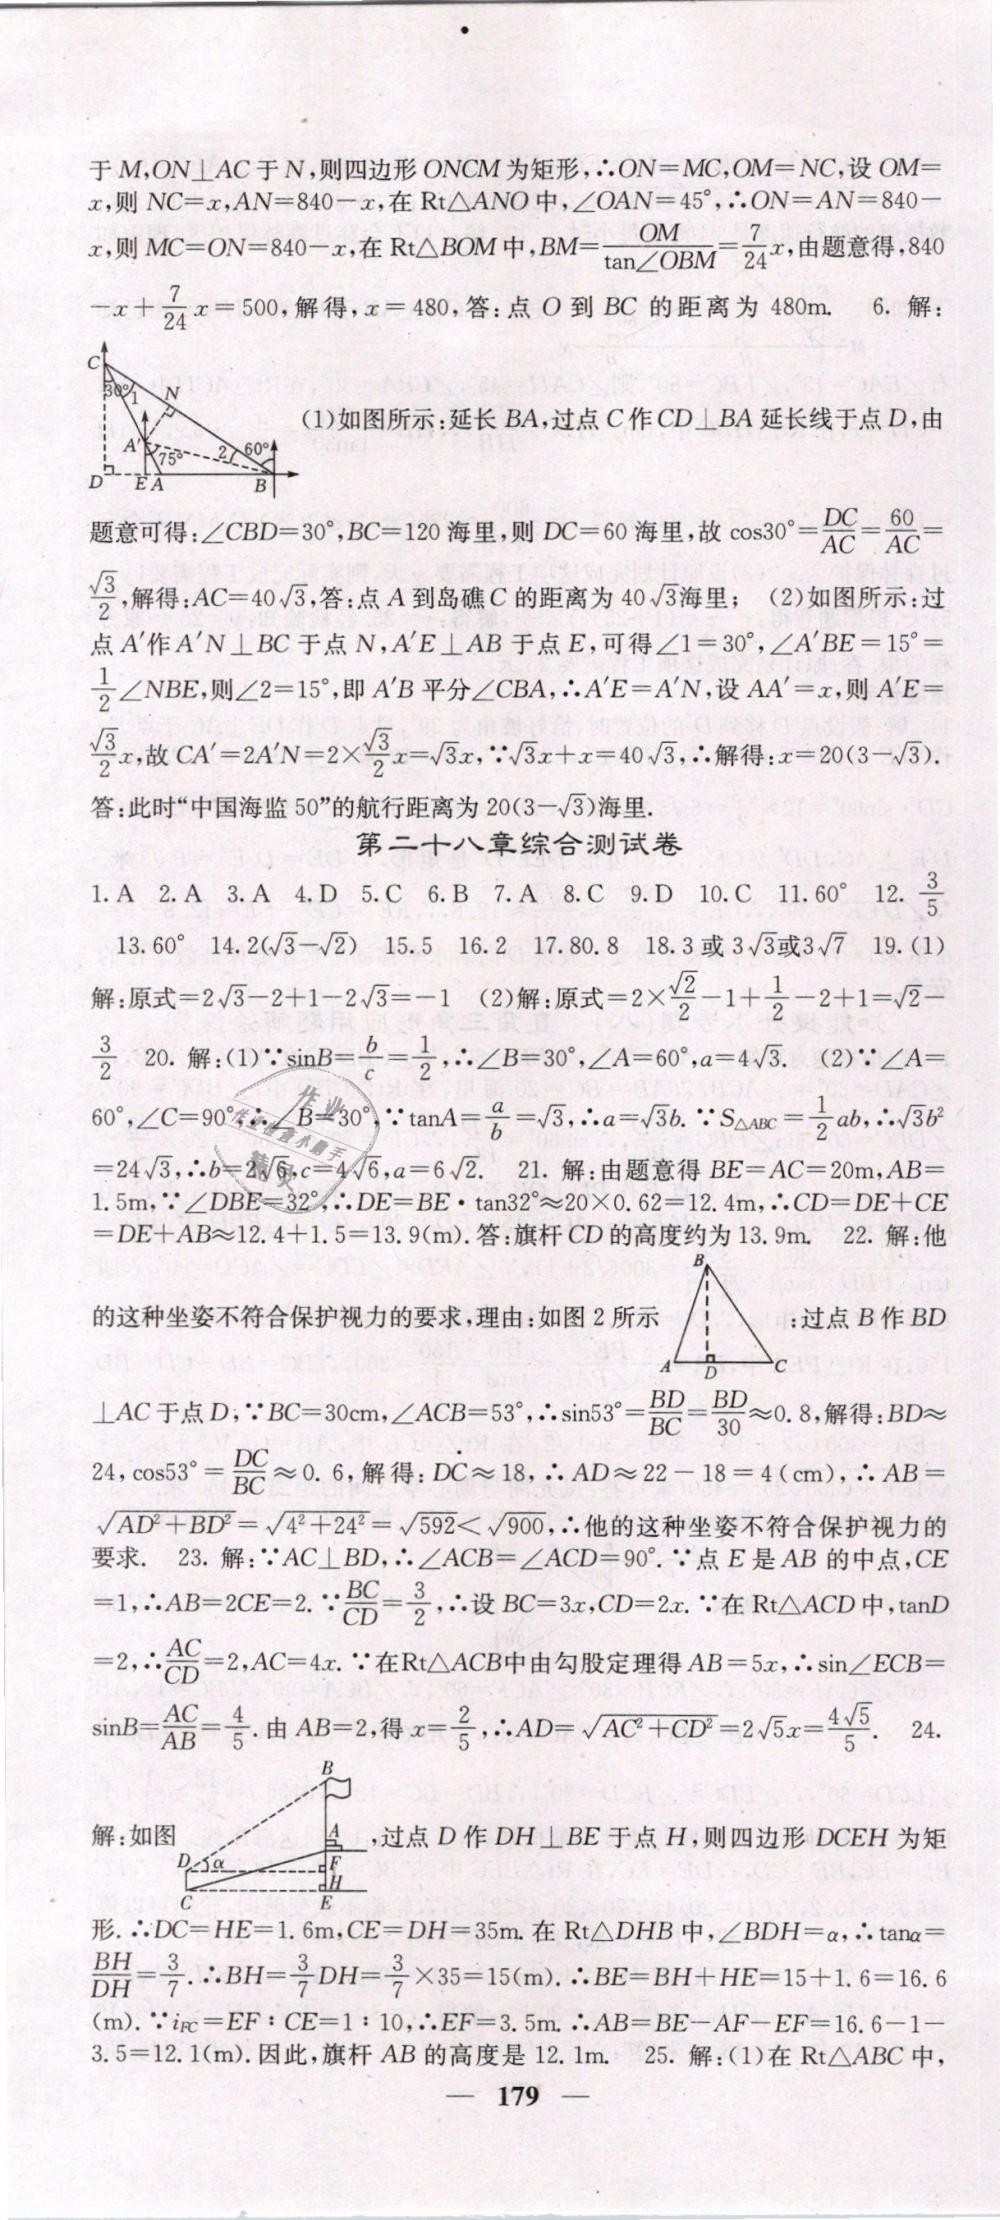 于 M,ON⊥AC 于 N,则四边形 ONCM 为矩形,∴ON=MC,OM=NC,设 OM=
x,则 NC=x,AN=840-x,在 Rt△ANO 中,∠OAN=45°,∴ON=AN=840-
x,则 MC=ON=840-x,在 Rt△BOM 中,BM=OM/tan∠OBM=7/24x,由题意得,840
-x+7/24x=500,解得,x=480,答:点 O 到 BC 的距离为 480m. 6. 解:
C
30°
1
N
A′
75°
2
60°
D
E
A
B
(1)如图所示:延长 BA,过点 C 作 CD⊥BA 延长线于点 D,由
题意可得:∠CBD=30°,BC=120 海里,则 DC=60 海里,故 cos30°=DC/AC=60/AC=
√3/2,解得:AC=40√3,答:点 A 到岛礁 C 的距离为 40√3海里; (2)如图所示:过
点 A′作 A′N⊥BC 于点 N,A′E⊥AB 于点 E,可得∠1=30°,∠A′BE=15°=
1/2∠NBE,则∠2=15°,即 A′B 平分∠CBA,∴A′E=A′N,设 AA′=x,则 A′E=
√3/2x,故 CA′=2A′N=2×√3/2x=√3x,∵√3x+x=40√3,∴解得:x=20(3-√3).
答:此时“中国海监 50”的航行距离为 20(3-√3)海里.
第二十八章综合测试卷
1. A 2. A 3. A 4. D 5. C 6. B 7. A 8. C 9. D 10. C 11. 60° 12. 3/5
13. 60° 14. 2(√3-√2) 15. 5 16. 2 17. 80. 8 18. 3 或 3√3或3√7 19. (1)
解:原式=2√3-2+1-2√3=-1 (2)解:原式=2×√2/2-1+1/2-2+1=√2-
3/2 20. 解:(1)∵sinB=b/c=1/2,∴∠B=30°,∠A=60°,a=4√3. (2)∵∠A=
60°,∠C=90°∴∠B=30°,∵tanA=a/b=√3,∴a=√3b. ∵S△ABC=1/2ab,∴√3b²
=24√3,∴b=2√6,c=4√6,a=6√2. 21. 解:由题意得 BE=AC=20m,AB=
1. 5m,∵∠DBE=32°,∴DE=BE·tan32°≈20×0. 62=12. 4m,∴CD=DE+CE
=DE+AB≈12. 4+1. 5=13. 9(m). 答:旗杆 CD 的高度约为 13. 9m. 22. 解:他
的这种坐姿不符合保护视力的要求,理由:如图 2 所示
B
A
D
C
:过点 B 作 BD
⊥AC 于点 D,∵BC=30cm,∠ACB=53°,∴sin53°=BD/BC=BD/30≈0. 8,解得:BD≈
24,cos53°=DC/BC≈0. 6,解得:DC≈18,∴AD≈22-18=4(cm),∴AB=
√(AD²+BD²)=√(4²+24²)=√592<√900,∴他的这种坐姿不符合保护视力的
要求. 23. 解:∵AC⊥BD,∴∠ACB=∠ACD=90°. ∵点 E 是 AB 的中点,CE
=1,∴AB=2CE=2. ∵BC/CD=3/2,∴设 BC=3x,CD=2x. ∵在 Rt△ACD 中,tanD
=2,∴AC/CD=2,AC=4x. ∵在Rt△ACB中由勾股定理得 AB=5x,∴sin∠ECB=
sinB=AC/AB=4/5. 由 AB=2,得 x=2/5,∴AD=√(AC²+CD²)=2√5x=4√5/5. 24.
解:如图
B
A
D
α
F
H
C
E
,过点 D 作 DH⊥BE 于点 H,则四边形 DCEH 为矩
形. ∴DC=HE=1. 6m,CE=DH=35m. 在 Rt△DHB 中,∠BDH=α,∴tanα=
BH/DH=3/7. ∴BH=3/7DH=3/7×35=15(m). ∴BE=BH+HE=15+1. 6=16. 6
(m). ∵iFC=EF∶CE=1∶10,∴EF=3. 5m. ∴AB=BE-AF-EF=16. 6-1-
3. 5=12. 1(m). 因此,旗杆 AB 的高度是 12. 1m. 25. 解:(1)在 Rt△ABC 中,
— 179 —